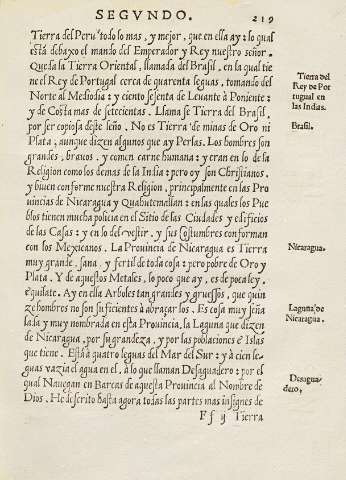 SEGVNDO. 219
Tierra del Peru todo lo mas, y mejor, que en ella ay: lo qual
està debaxo el mando del Emperador y Rey nuestro señor.
Queda la Tierra Oriental, llamada del Brasil, en la qual tie
ne el Rey de Portugal cerca de quarenta leguas, tomando del
Norte al Mediodia: y ciento sesenta de Leuante à Poniente:
y de Costa mas de setecientas. Llama se Tierra del Brasil,
por ser copiosa deste leño. No es Tierra de minas de Oro ni
Plata, aunque dizen algunos que ay Perlas. Los hombres son
grandes, brauos, y comen carne humana: y eran en lo de la
Religion como los demas de la India: pero oy son Christianos,
y biuen conforme nuestra Religion, principalmente en las Pro
uincias de Nicaragua y Quahutemallan: en las quales los Pue
blos tienen mucha policia en el Sitio de las Ciudades y edificios
de las Casas: y en lo del vestir, y sus costumbres conforman
con los Mexicanos. La Prouincia de Nicaragua es Tierra
muy grande, sana, y fertil de toda cosa: pero pobre de Oro y
Plata. Y de aquestos Metales, lo poco que ay, es de poca ley,
è quilate. Ay en ella Arboles tan grandes y gruessos, que quin
ze hombres no son suficientes à abraçar los. Es cosa muy seña
lada y muy nombrada en esta Prouincia, la Laguna que dizen
de Nicaragua, por su grandeza, y por las poblaciones è Islas
que tiene. Està à quatro leguas del Mar del Sur: y à cien le-
guas vazia el agua en el, à lo que llaman Desaguadero: por el
qual Nauegan en Barcas de aquesta Prouincia al Nombre de
Dios. He descrito hasta agora todas las partes mas insignes de
Ff ij Tierra
Tierra del
Rey de Por
tugual en
las Indias.
Brasil.
Nicaragua.
Laguna de
Nicaragua.
Desagua-
dero,